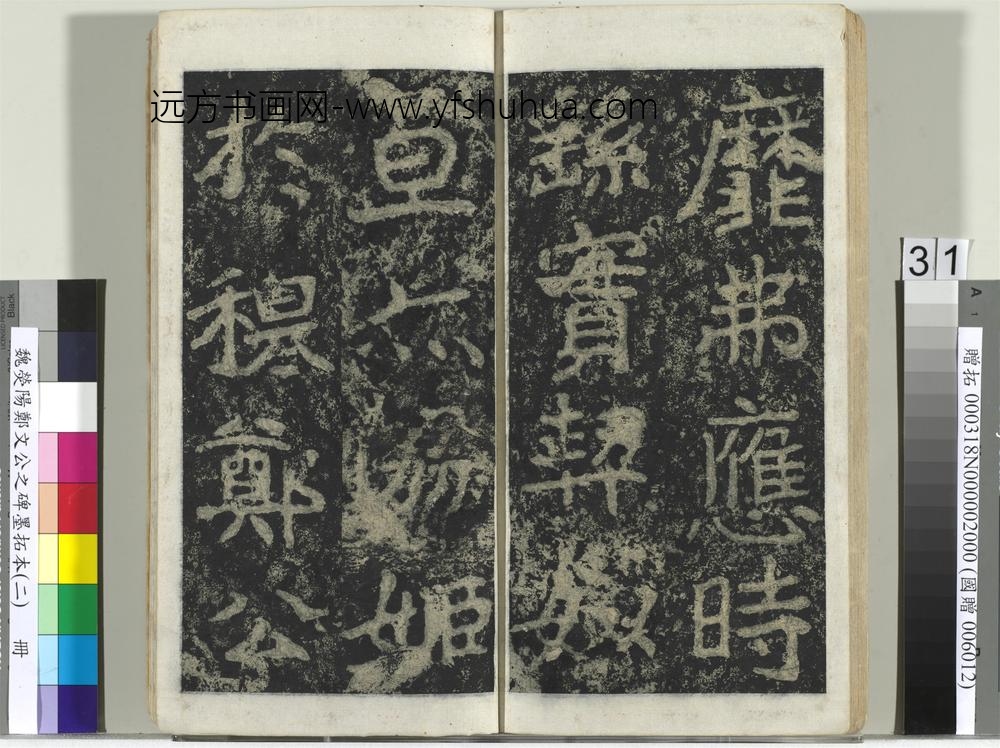 靡弗應時
繇實契姒
旦亦協姬
於穆鄭公
远方书画网-www.yfshuhua.com
魏滎陽鄭文公之碑墨拓本(二) 冊
31
贈拓 000318N000002000 (國贈 006012)
Black
A
1